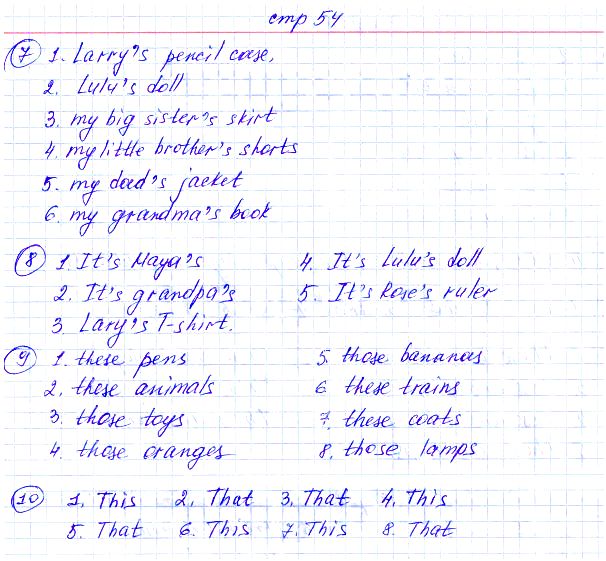 стр 54
7 1. Larry's pencil case.
2. Lulu's doll
3. my big sister's skirt
4. my little brother's shorts
5. my dad's jacket
6. my grandma's book
8 1. It's Maya's 4. It's Lulu's doll
2. It's grandpa's 5. It's Rose's ruler
3. Lary's T-shirt.
9 1. these pens 5. those bananas
2. these animals 6 these trains
3. those toys 7. these coats
4. those oranges 8. those lamps
10 1. This 2. That 3. That 4. This
5. That 6. This 7. This 8. That